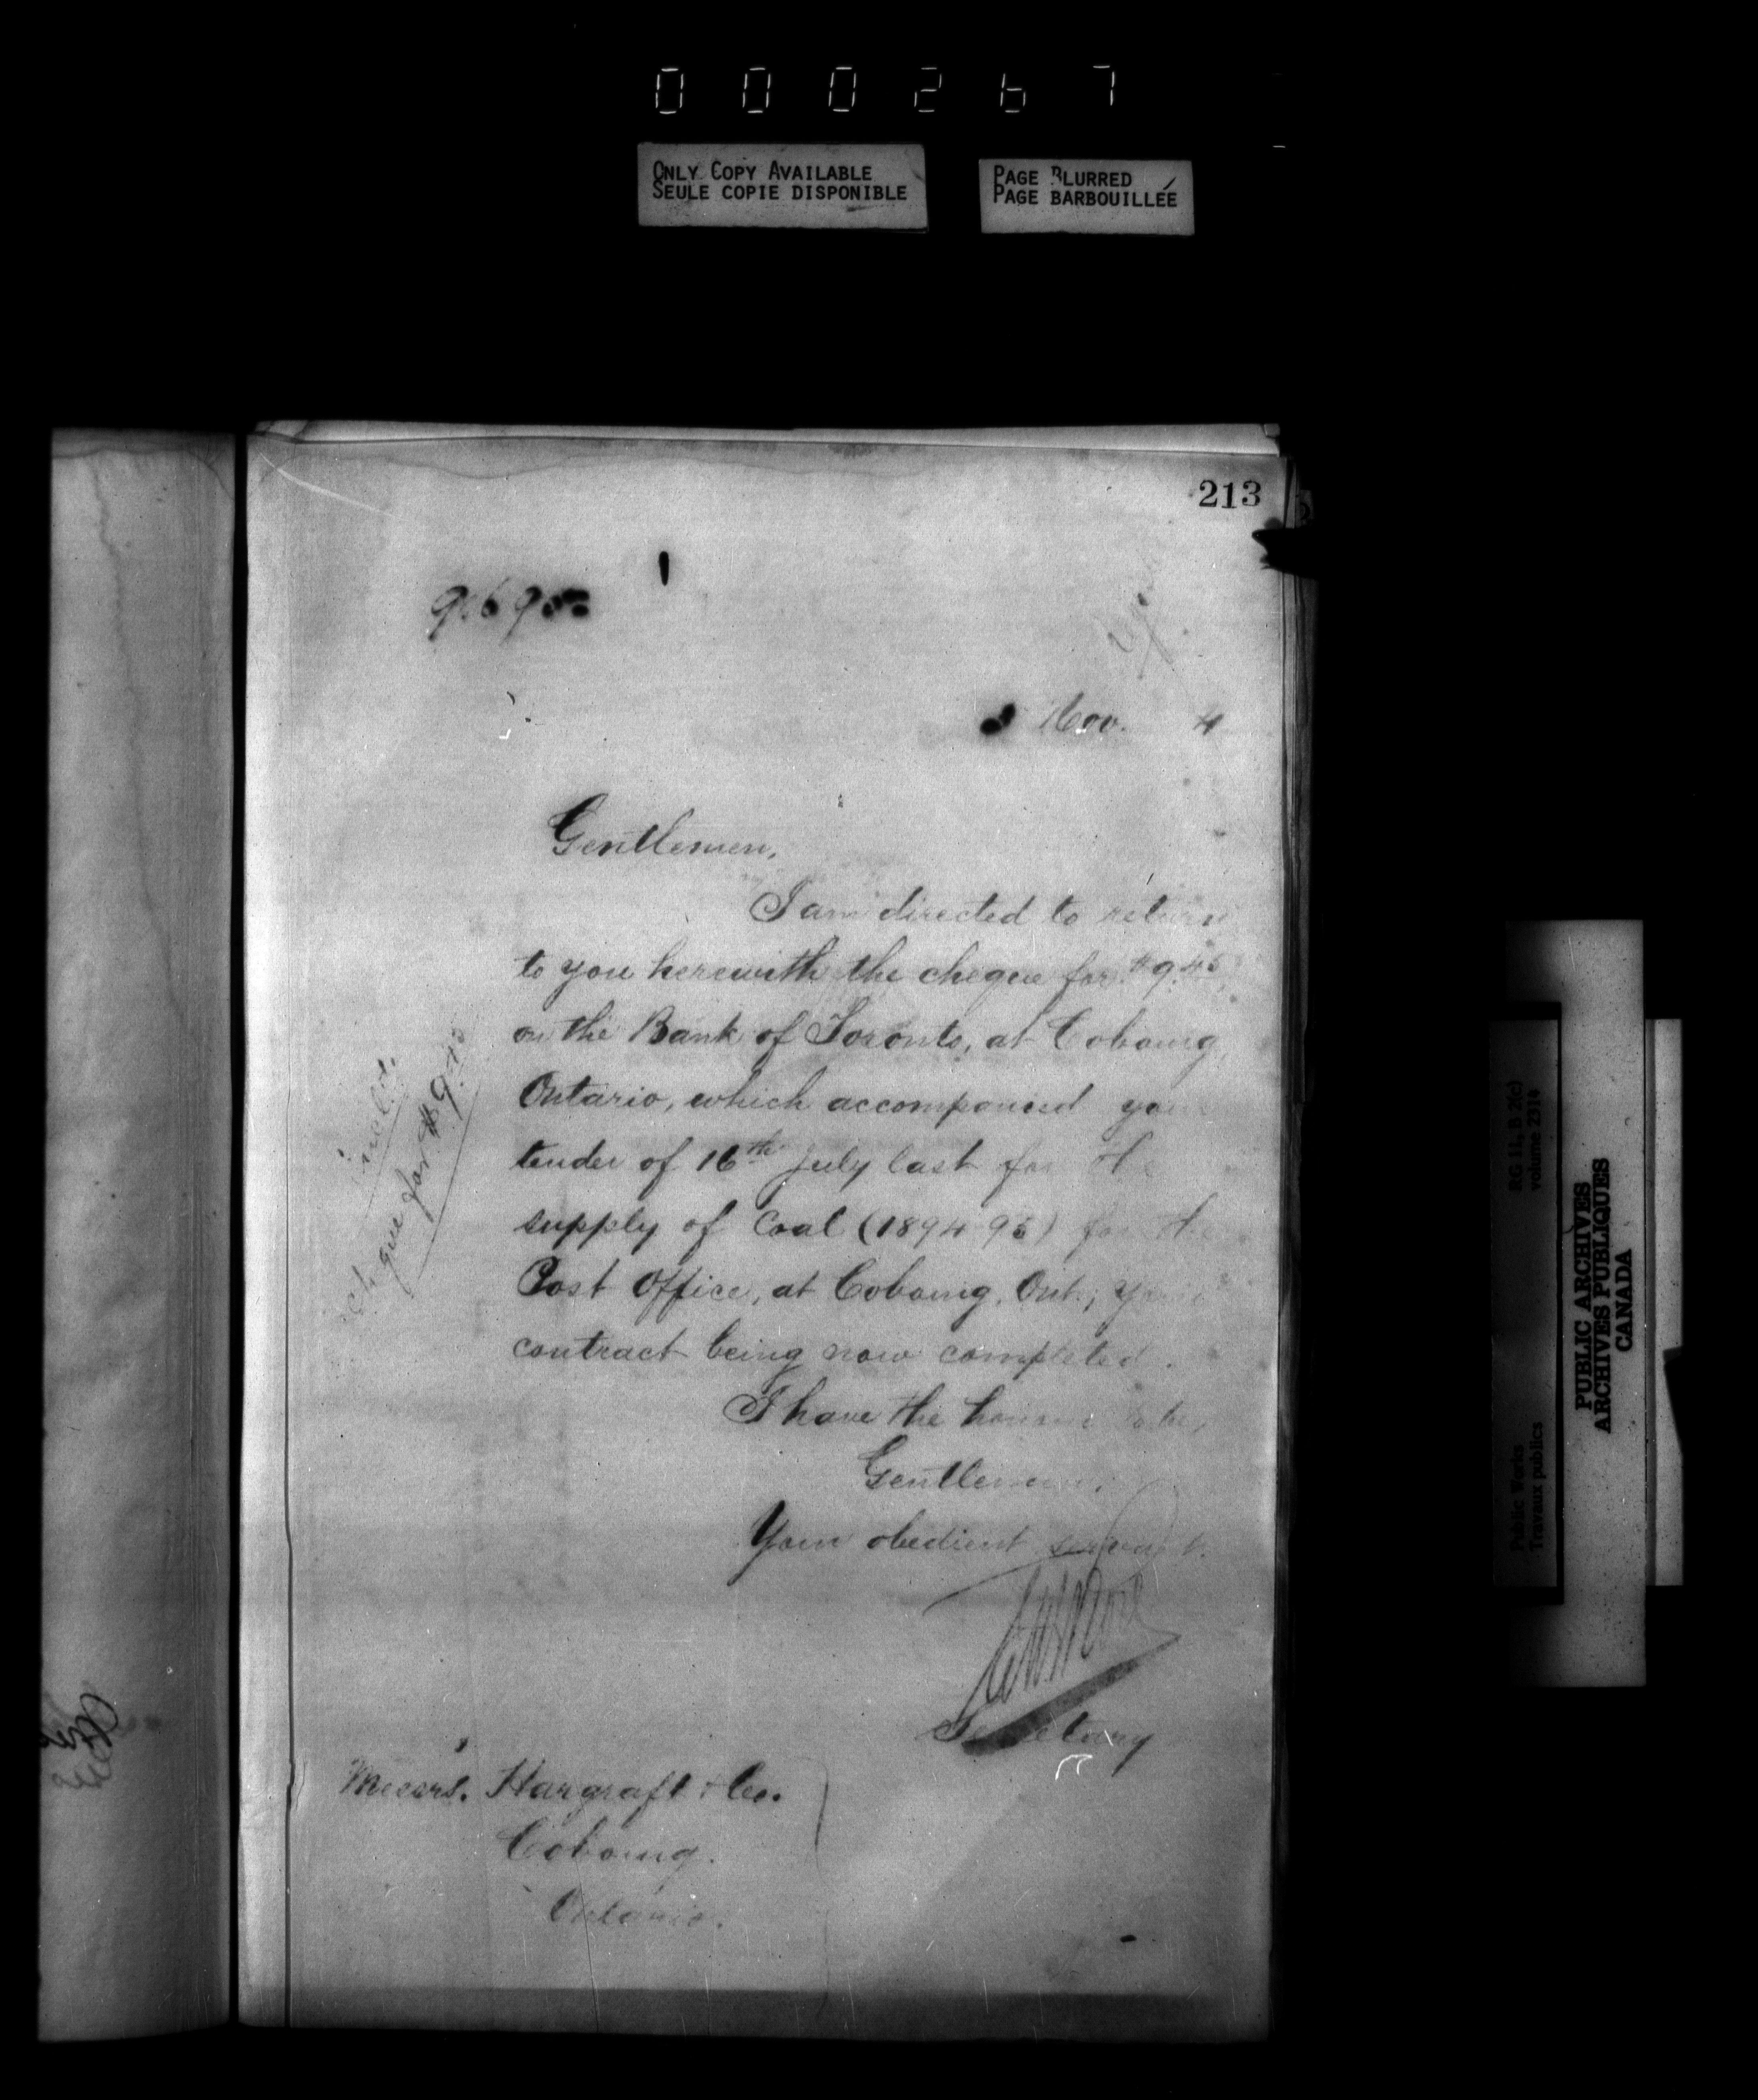 000267
ONLY COPY AVAILABLE
SEULE COPIE DISPONIBLE
PAGE BLURRED
PAGE BARBOUILLÉE
213
Nov. 4
Gentlemen,
I am directed to return
to you herewith the cheque for $9.45
on the Bank of Toronto, at Cobourg,
Ontario, which accompanied your
tender of 16th July last for the
supply of Coal (1894-95) for the
Post Office, at Cobourg, Ont.; your
contract being now completed.
I have the honour to be,
Gentlemen,
Your obedient servant.
Secretary
Messrs. Hargraft & Co.
Cobourg.
Ontario.
1 inclo.
Cheque for $9.45
RG 11, B 2(c)
volume 2314
Public Works
Travaux publics
PUBLIC ARCHIVES
ARCHIVES PUBLIQUES
CANADA